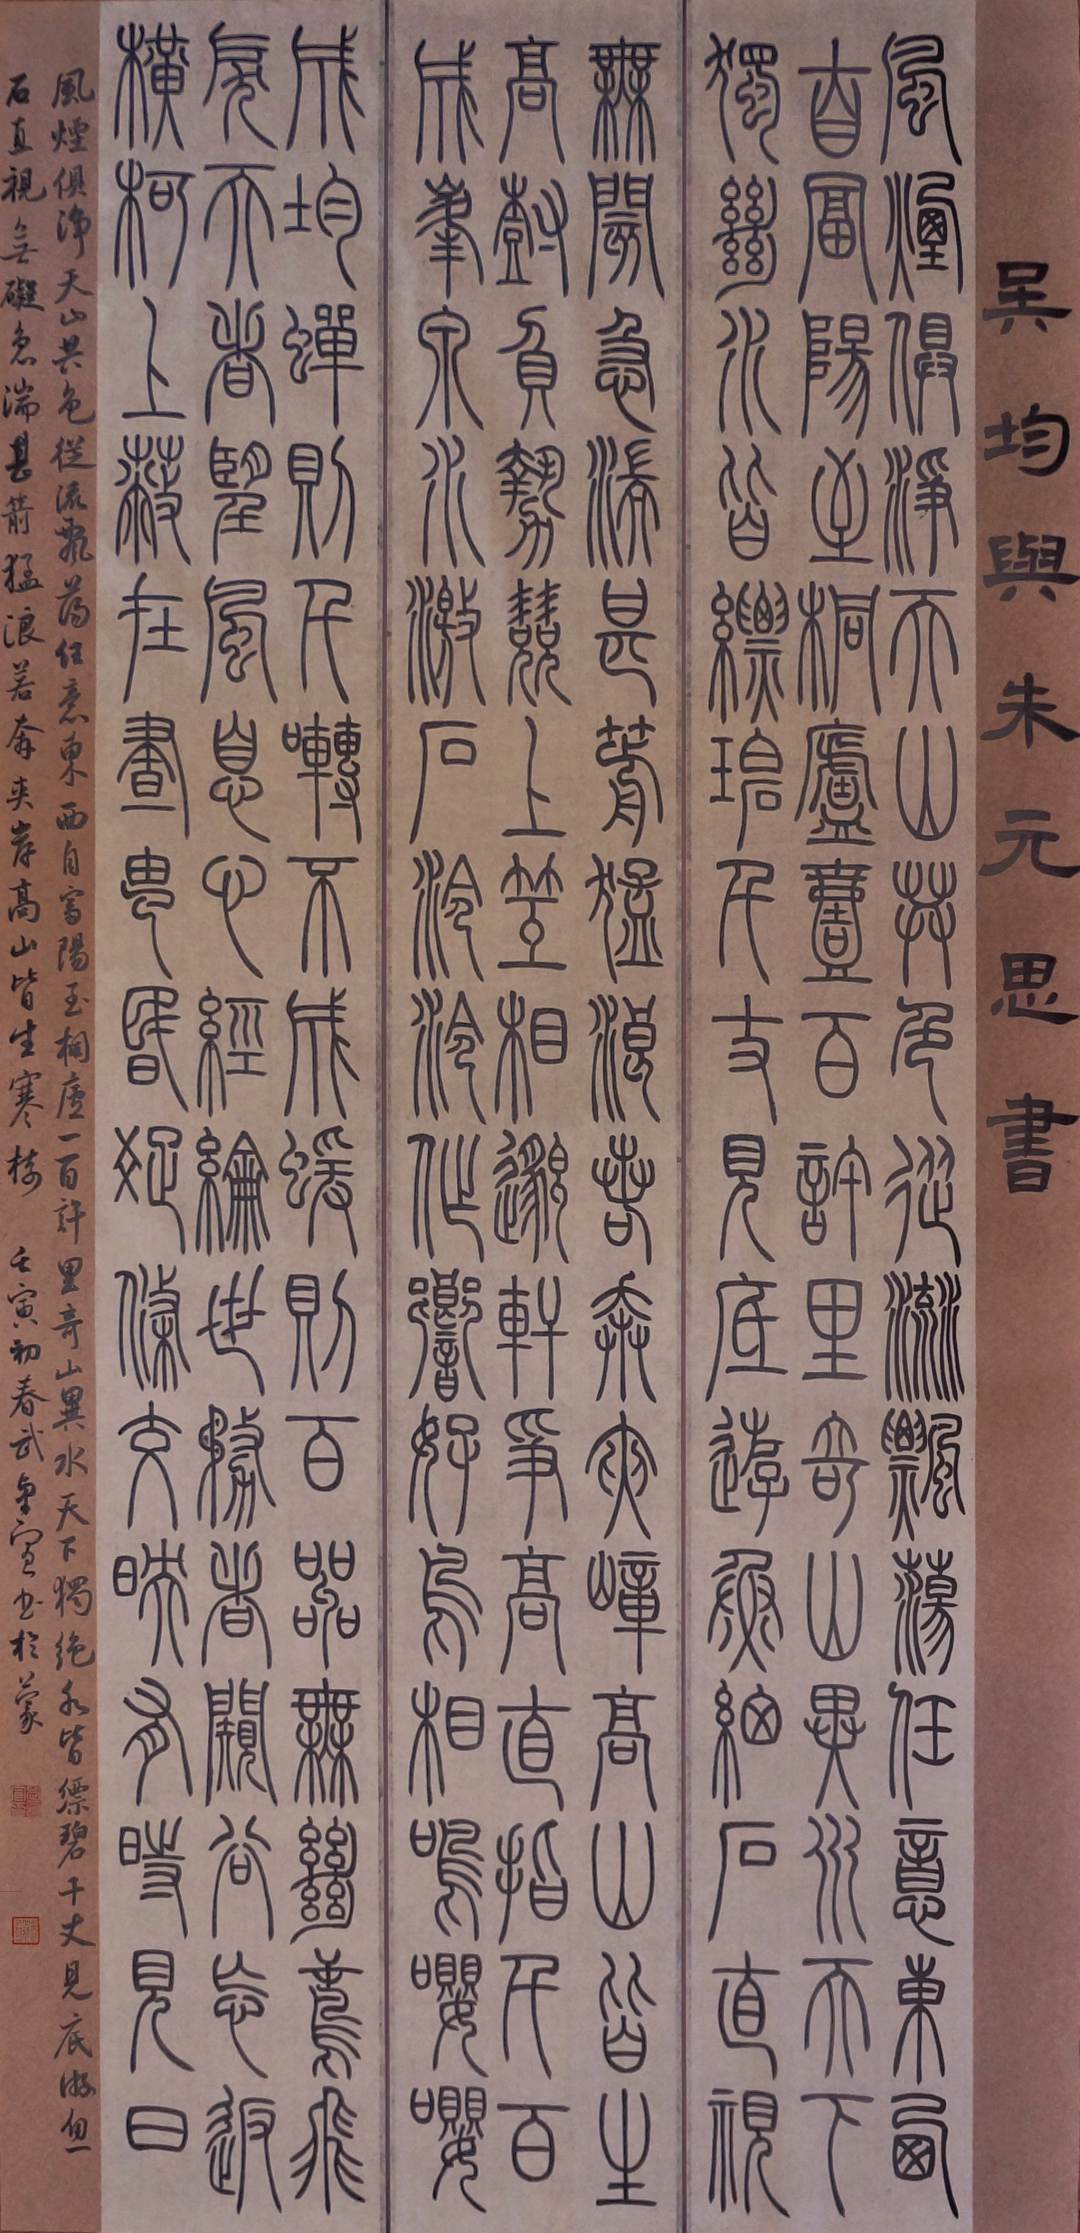 吴均與朱元思書
風煙俱淨天山共色從流飄蕩任意東西
自富陽至桐廬壹百許里奇山異水天下
獨絕水皆縹碧千丈見底游魚細石直視
無閡急湍甚箭猛浪若奔夾嶂高山皆生
高樹負勢競上互相邈軒爭高直指千百
成峯泉水激石泠泠作響好鳥相鳴嚶嚶
成均蟬則千囀不成蝯則百嘂無絕鳶飛
戾天者望風息心經綸世務者闚谷忘返
橫柯上蔽在晝昏疏條交映有時見日
風煙俱淨天山共色從流飄蕩任意東西自富陽至桐廬一百許里奇山異水天下獨絕水皆縹碧千丈見底游魚
石直視無礙急湍甚箭猛浪若奔夾岸高山皆生寒樹 壬寅初春武書於蒙